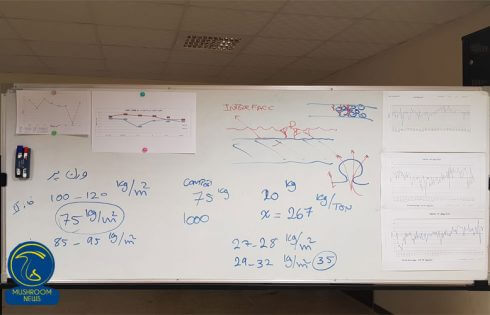 INTERFACE
وزن پر
100-120 kg/m²
75 kg/m²
85-95 kg/m²
COMPOST
75 kg
1000
20 kg
x = 267 kg/TON
27-28 kg/m²
29-32 kg/m² 35
MUSHROOM
NEWS